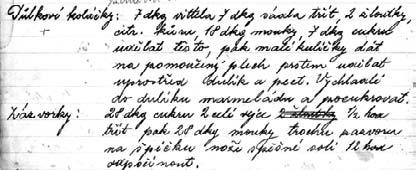 Důlkové koláčky: 7 dkg vitela 7 dkg sádla třít, 2 žloutky,
citr. kůru, 18 dkg mouky, 7 dkg cukru
udělat těsto, pak malé kuličky dát
na pomoučený plech prstem udělat
uprostřed důlek a pect. Vychladlé
do důlku marmeládu a pocukrovat.
Zázvorky: 28 dkg cukru 2 celé vejce 2 žloutky ½ hod
třít pak 28 dkg mouky trochu zázvoru
na špičku nože soli 12 hod
odpočinout.